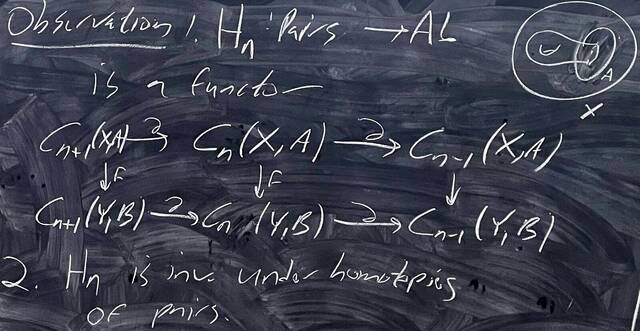 Observation 1. Hn : Pairs → Ab
is a functor
Cn+1(X,A) ∂→ Cn(X,A) ∂→ Cn-1(X,A)
↓F ↓F ↓
Cn+1(Y,B) ∂→ Cn(Y,B) ∂→ Cn-1(Y,B)
2. Hn is inv. under homotopies
of pairs.
A
X